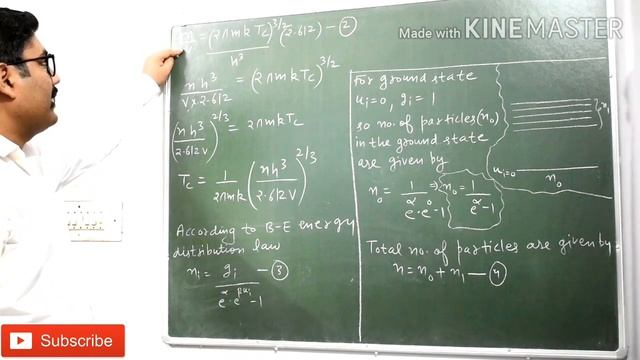 Made with KINEMASTER
n/v = (2πmkTc)^3/2 (2.612) — ②
h³
nh³/v×2.612 = (2πmkTc)^3/2
(nh³/2.612v)^2/3 = 2πmkTc
Tc = 1/2πmk (nh³/2.612v)^2/3
According to B-E energy
distribution law
nᵢ = gᵢ/e^α·e^βuᵢ-1 — ③
For ground state
uᵢ=0, gᵢ=1
so no. of particles (n₀)
in the ground state
are given by
n₀ = 1/e^α·e^0-1 ⇒ n₀ = 1/e^α-1
n₁
uᵢ=0
n₀
Total no. of particles are given by
n = n₀ + n₁ — ④
Subscribe